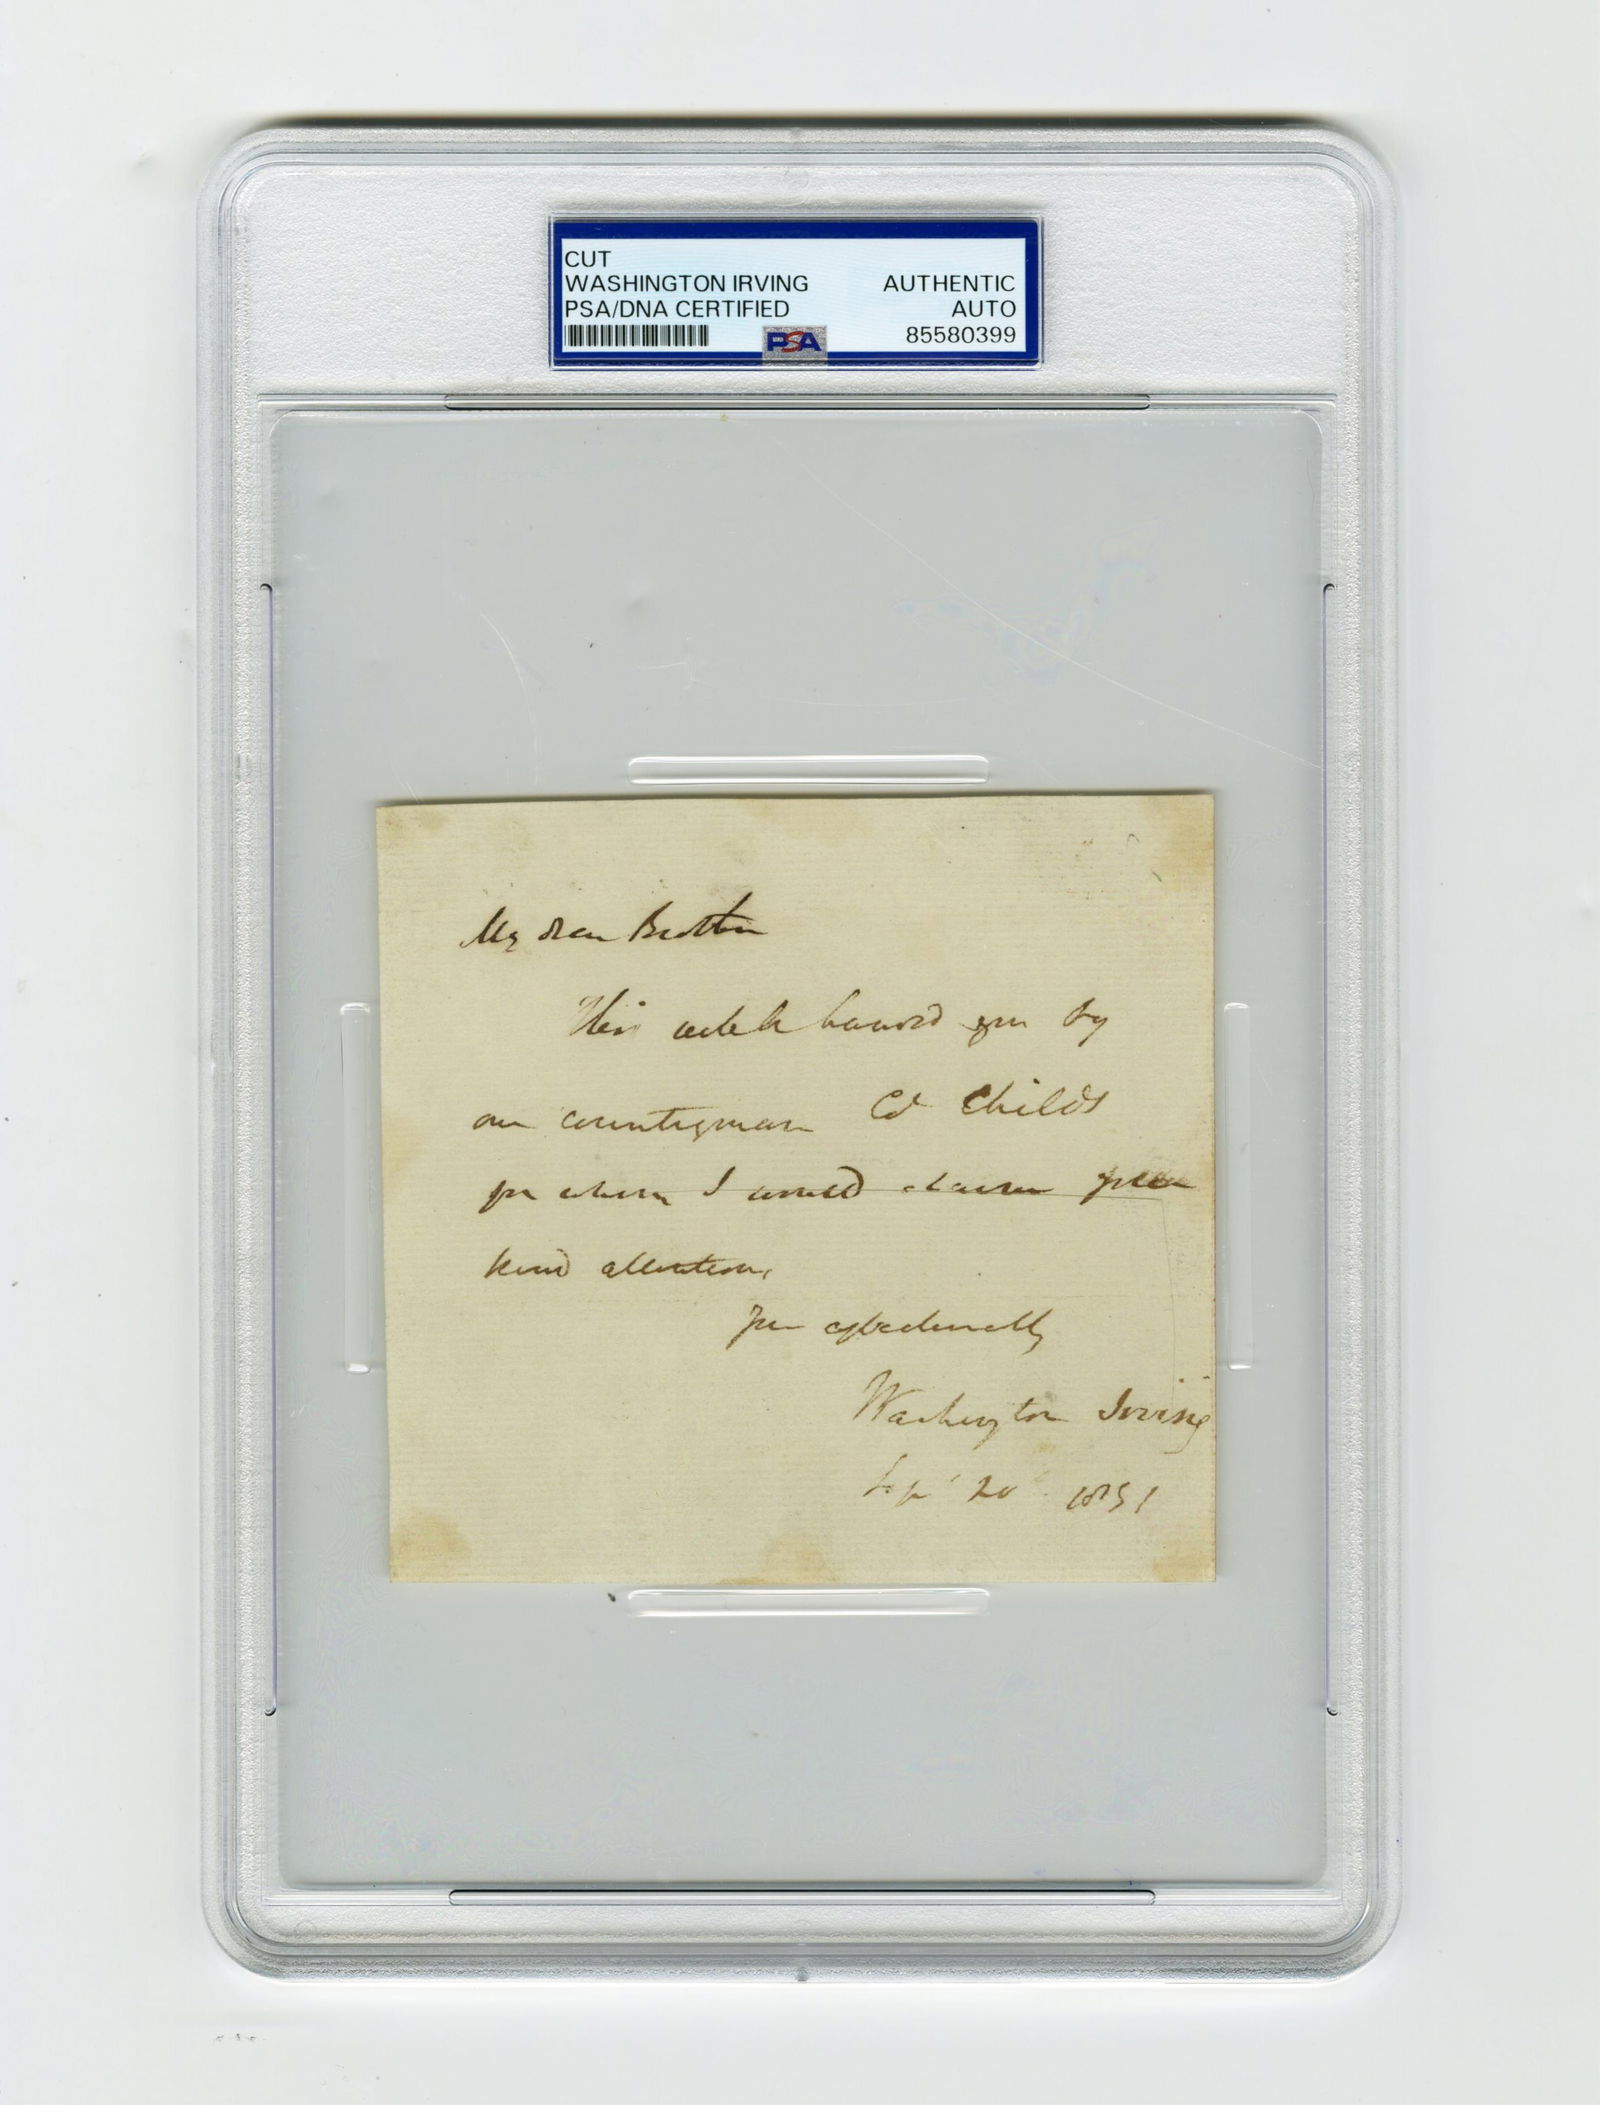 CUT
WASHINGTON IRVING
PSA/DNA CERTIFIED
AUTHENTIC
AUTO
85580399
PSA
My dear Brother
This will be handed you by
our countryman Col Childs
for whom I would claim your
kind attention,
Yours affectionately
Washington Irving
Sept 20th 1831